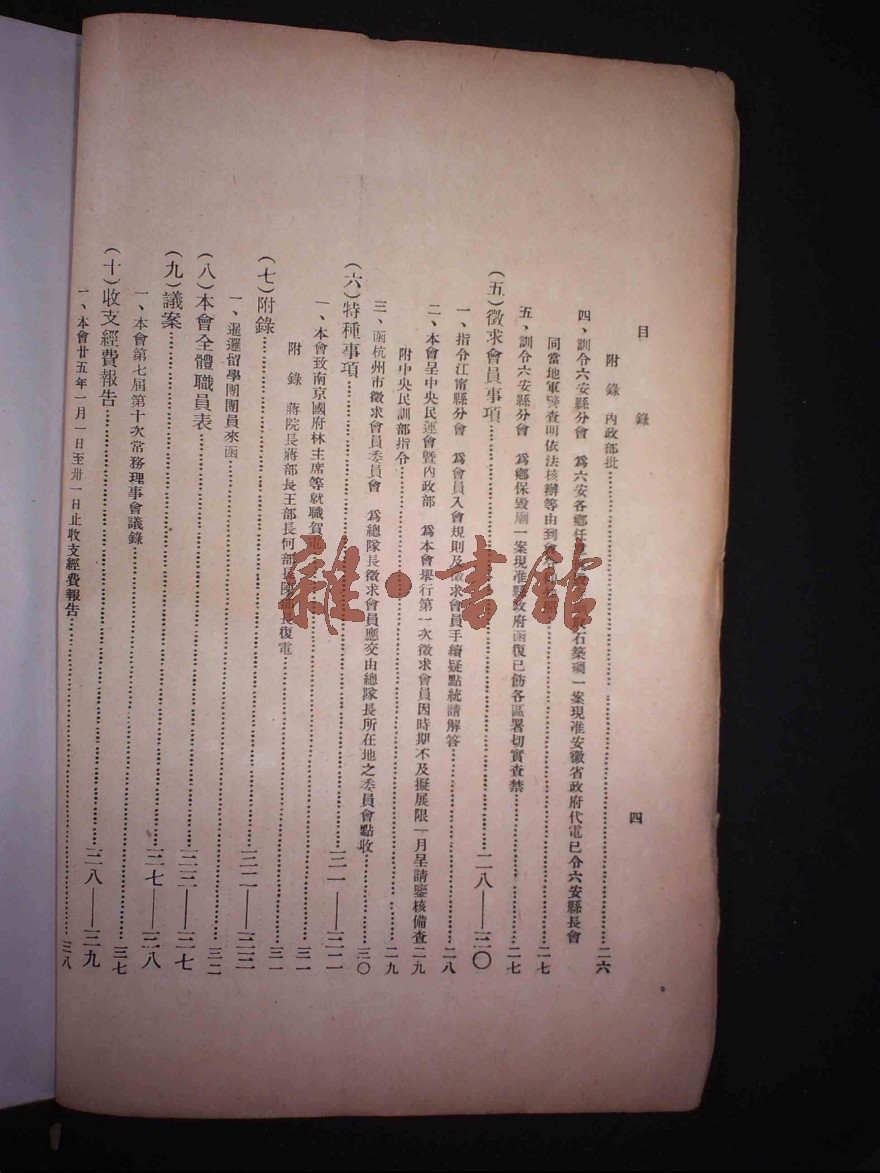 目錄
四
附錄 內政部批……二六
四、訓令六安縣分會 爲六安各鄉任意 石築碉一案現准安徽省政府代電已令六安縣長會
同當地軍警查明依法核辦等由到會 ……二七
五、訓令六安縣分會 爲鄉保毀廟一案現准縣政府函復已飭各區署切實查禁……二七
(五)徵求會員事項……二八——三〇
一、指令江甯縣分會 爲會員入會規則及徵求會員手續疑點統請解答……二八
二、本會呈中央民運會暨內政部 爲本會舉行第一次徵求會員因時期不及擬展限一月呈請鑒核備查……二九
附中央民訓部指令……二九
三、函杭州市徵求會員委員會 爲總隊長徵求會員應交由總隊長所在地之委員會點收……三〇
(六)特種事項……三一——三二
一、本會致南京國府林主席等就職賀電……三一
附錄 蔣院長蔣部長王部長何部長陳部長復電……三一
(七)附錄……三二——三三
一、暹邏留學團團員來函……三二
(八)本會全體職員表……三三——三七
(九)議案……三七——三八
一、本會第七屆第十次常務理事會議錄……三七
(十)收支經費報告……三八——三九
一、本會廿五年一月一日至卅一日止收支經費報告……三八
雜·書館